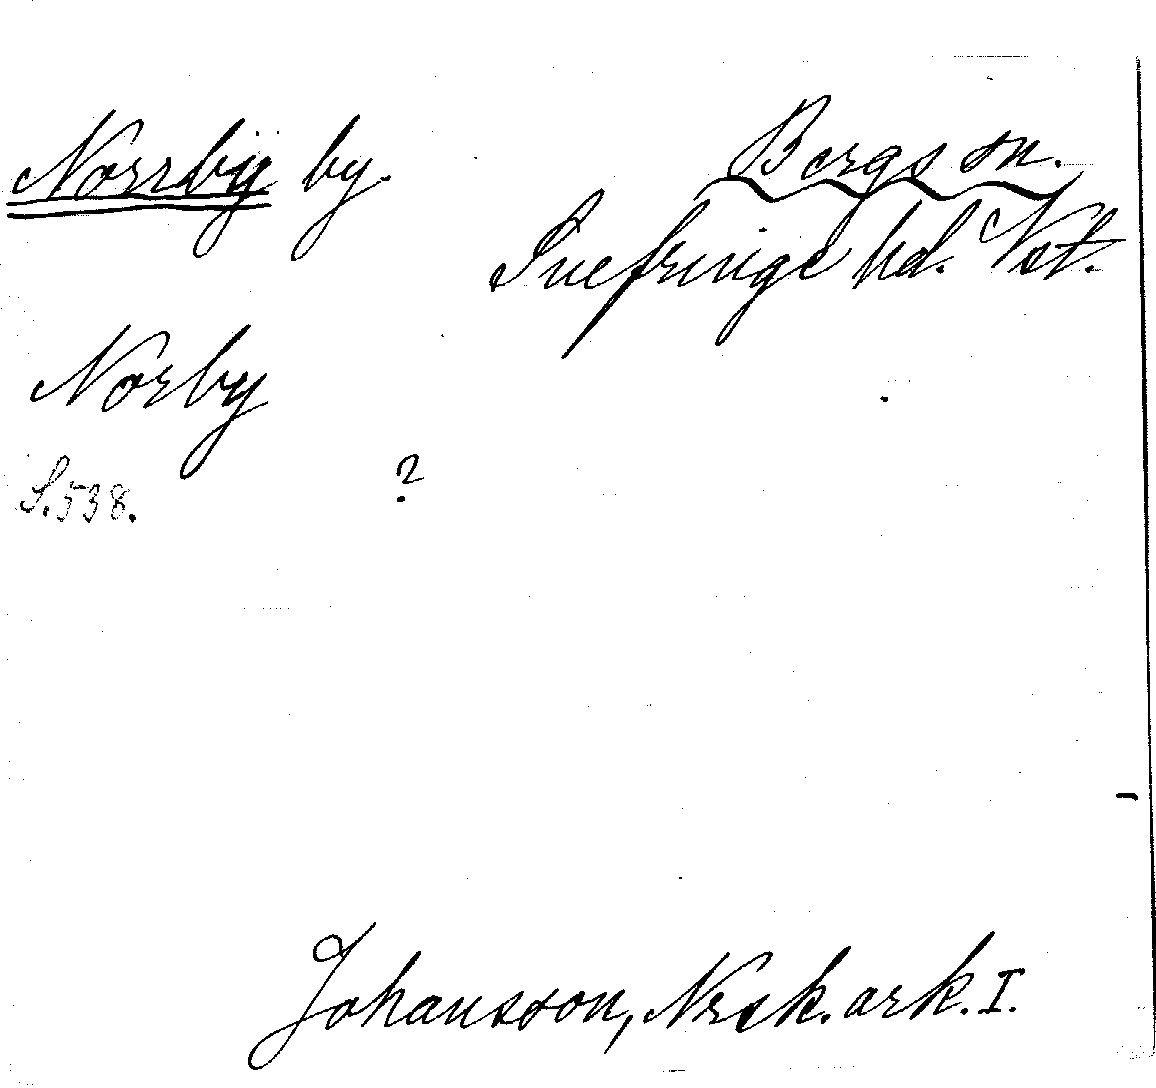 Norrby by. Bergs sn.
Snefringe hd. Vst.
Norby
S. 538. ?
Johansson, Nrsk. ark. I.